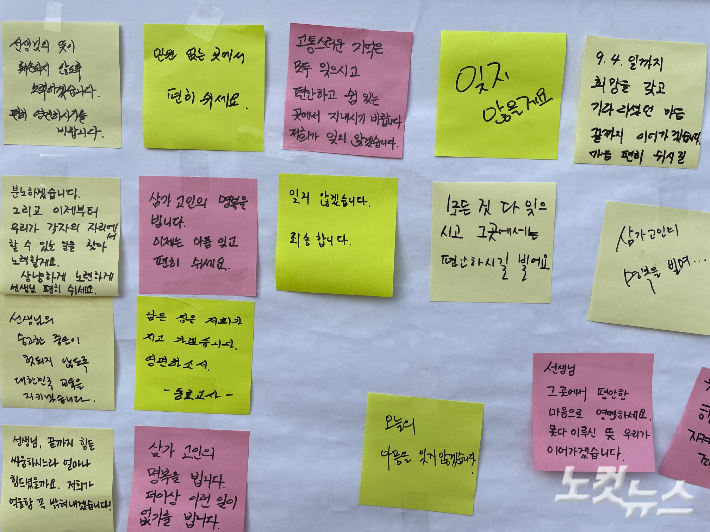 선생님의 뜻이
훼손되지 않도록
노력하겠습니다.
편히 영면하시기를
바랍니다.
민원 없는 곳에서
편히 쉬세요.
고통스러운 기억은
모두 잊으시고
편안하고 쉼 있는
곳에서 지내시기 바랍니다
저희가 잊지 않겠습니다.
잊지
않을게요
9. 4. 일까지
희망을 갖고
기다리셨던 마음
끝까지 이어가겠습니다.
마음 편히 쉬시길
분노하겠습니다.
그리고 이제부터
우리가 각자의 자리에서
할 수 있는 일을 찾아
노력할게요.
상냥하게 노련하게
선생님 편히 쉬세요.
삼가 고인의 명복을
빕니다.
이제는 아픔 잊고
편히 쉬세요.
잊지 않겠습니다.
죄송합니다.
모든 것 다 잊으
시고 그곳에서는
편안하시길 빌어요
삼가 고인의
명복을 빌며...
선생님의
숭고한 죽음이
헛되지 않도록
대한민국 교육을
지키겠습니다.
남은 짐은 저희가
지고 가겠습니다.
영면하소서.
- 동료교사 -
오늘의
마음을 잊지 않겠습니다.
선생님
그곳에서 평안한
마음으로 영면하세요.
못다 이루신 뜻 우리가
이어가겠습니다.
선생님, 끝까지 힘든
싸움하시느라 얼마나
힘드셨을까요. 저희가
억울함 꼭 밝혀내겠습니다!
삼가 고인의
명복을 빕니다.
더이상 이런 일이
없기를 빕니다.
노컷뉴스